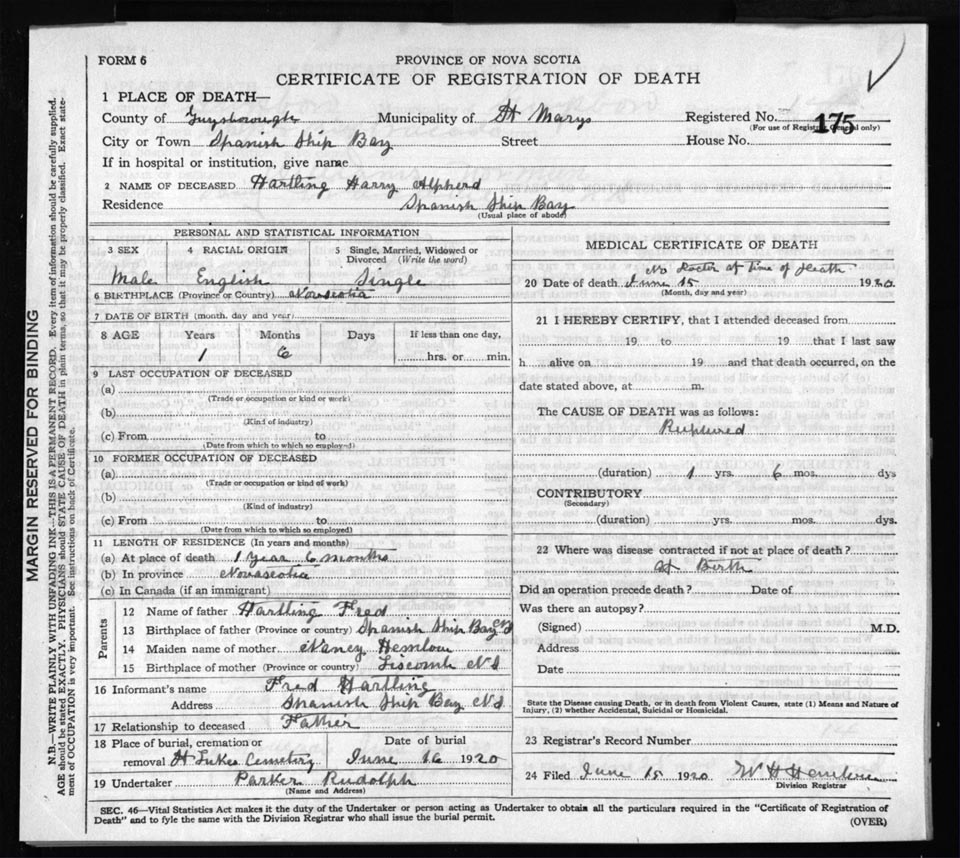 FORM 6
PROVINCE OF NOVA SCOTIA
CERTIFICATE OF REGISTRATION OF DEATH
1 PLACE OF DEATH—
County of Guysborough Municipality of St Marys Registered No. 175
(For use of Registrar General only)
City or Town Spanish Ship Bay Street House No.
If in hospital or institution, give name
2 NAME OF DECEASED Hartling Harry Alpherd
Residence Spanish Ship Bay
(Usual place of abode)
PERSONAL AND STATISTICAL INFORMATION
3 SEX 4 RACIAL ORIGIN 5 Single, Married, Widowed or Divorced (Write the word)
Male English Single
6 BIRTHPLACE (Province or Country) Novascotia
7 DATE OF BIRTH (month, day and year)
8 AGE Years Months Days If less than one day,
1 6 hrs. or min.
9 LAST OCCUPATION OF DECEASED
(a)
(Trade or occupation or kind or work)
(b)
(Kind of industry)
(c) From to
(Date from which to which so employed)
10 FORMER OCCUPATION OF DECEASED
(a)
(Trade or occupation or kind of work)
(b)
(Kind of industry)
(c) From to
(Date from which to which so employed)
11 LENGTH OF RESIDENCE (In years and months)
(a) At place of death 1 Year 6 months
(b) In province Novascotia
(c) In Canada (if an immigrant)
Parents
12 Name of father Hartling Fred
13 Birthplace of father (Province or country) Spanish Ship Bay
14 Maiden name of mother Nancy Hemlow
15 Birthplace of mother (Province or country) Liscomb N S
16 Informant's name Fred Hartling
Address Spanish Ship Bay N S
17 Relationship to deceased Father
18 Place of burial, cremation or removal St Lukes Cemetery
Date of burial June 16 1920
19 Undertaker Parker Rudolph
(Name and Address)
MEDICAL CERTIFICATE OF DEATH
No Doctor at Time of Death
20 Date of death June 15 1920
(Month, day and year)
21 I HEREBY CERTIFY, that I attended deceased from
19 to 19 that I last saw
h alive on 19 and that death occurred, on the
date stated above, at m.
The CAUSE OF DEATH was as follows:
Ruptured
(duration) 1 yrs. 6 mos. dys
CONTRIBUTORY
(Secondary)
(duration) yrs. mos. dys.
22 Where was disease contracted if not at place of death?
at Birth
Did an operation precede death? Date of
Was there an autopsy?
(Signed) M.D.
Address
Date
State the Disease causing Death, or in death from Violent Causes, state (1) Means and Nature of
Injury, (2) whether Accidental, Suicidal or Homicidal.
23 Registrar's Record Number
24 Filed June 15 1920 W H
Division Registrar
SEC. 46—Vital Statistics Act makes it the duty of the Undertaker or person acting as Undertaker to obtain all the particulars required in the "Certificate of Registration of
Death" and to fyle the same with the Division Registrar who shall issue the burial permit.
(OVER)
MARGIN RESERVED FOR BINDING
N.B.—WRITE PLAINLY WITH UNFADING INK—THIS IS A PERMANENT RECORD. Every item of information should be carefully supplied.
AGE should be stated EXACTLY. PHYSICIANS should STATE CAUSE OF DEATH in plain terms, so that it may be properly classified. Exact state-
ment of OCCUPATION is very important. See instructions on back of Certificate.